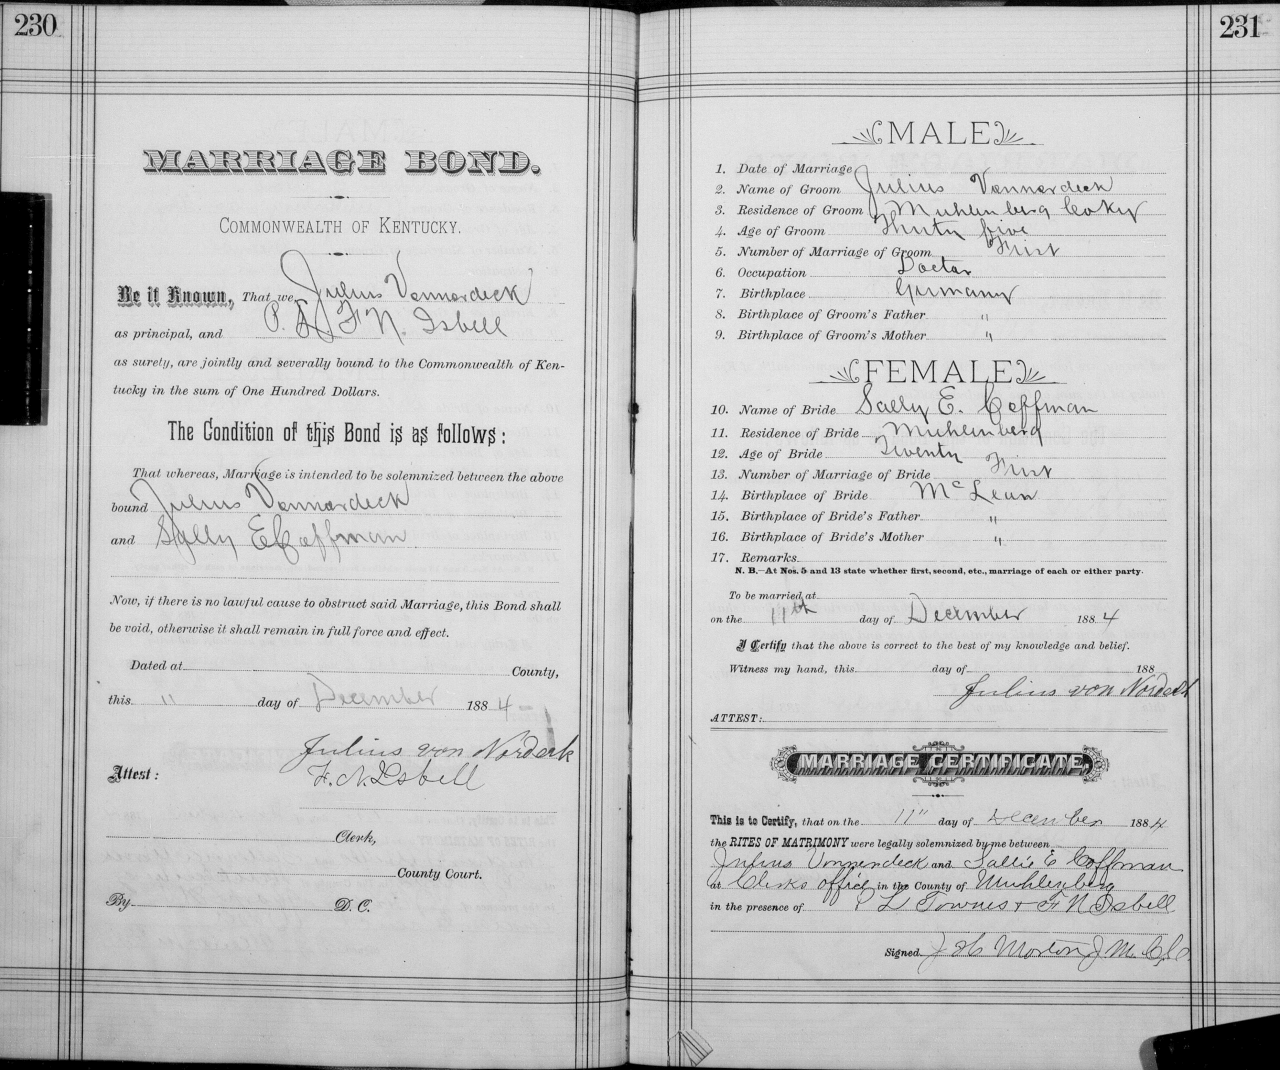 230
MARRIAGE BOND.
COMMONWEALTH OF KENTUCKY.
Be it Known, That we, Julius Vonnordeck
as principal, and P. L F. N. Isbell
as surety, are jointly and severally bound to the Commonwealth of Ken-
tucky in the sum of One Hundred Dollars.
The Condition of this Bond is as follows:
That whereas, Marriage is intended to be solemnized between the above
bound Julius Vonnordeck
and Sally E Coffman
Now, if there is no lawful cause to obstruct said Marriage, this Bond shall
be void, otherwise it shall remain in full force and effect.
Dated at County,
this 11 day of December 1884
Julius von Nordeck
Attest: F. N. Isbell
Clerk,
County Court.
By D. C.
231
MALE
1. Date of Marriage
2. Name of Groom Julius Vonnordeck
3. Residence of Groom Muhlenberg Co Ky
4. Age of Groom Thirty five
5. Number of Marriage of Groom First
6. Occupation Doctor
7. Birthplace Germany
8. Birthplace of Groom's Father "
9. Birthplace of Groom's Mother "
FEMALE
10. Name of Bride Sally E. Coffman
11. Residence of Bride Muhlenberg
12. Age of Bride Twenty
13. Number of Marriage of Bride First
14. Birthplace of Bride McLean
15. Birthplace of Bride's Father "
16. Birthplace of Bride's Mother "
17. Remarks
N. B.—At Nos. 5 and 13 state whether first, second, etc., marriage of each or either party.
To be married at
on the 11th day of December 1884
I Certify that the above is correct to the best of my knowledge and belief.
Witness my hand, this day of 188
Julius von Nordeck
ATTEST:
MARRIAGE CERTIFICATE.
This is to Certify, that on the 11" day of December 1884
the RITES OF MATRIMONY were legally solemnized by me between
Julius Vonnerdeck and Sallie E Coffman
at Clerks office in the County of Muhlenberg
in the presence of P L Townes + F N Isbell
Signed J H Morton J M C